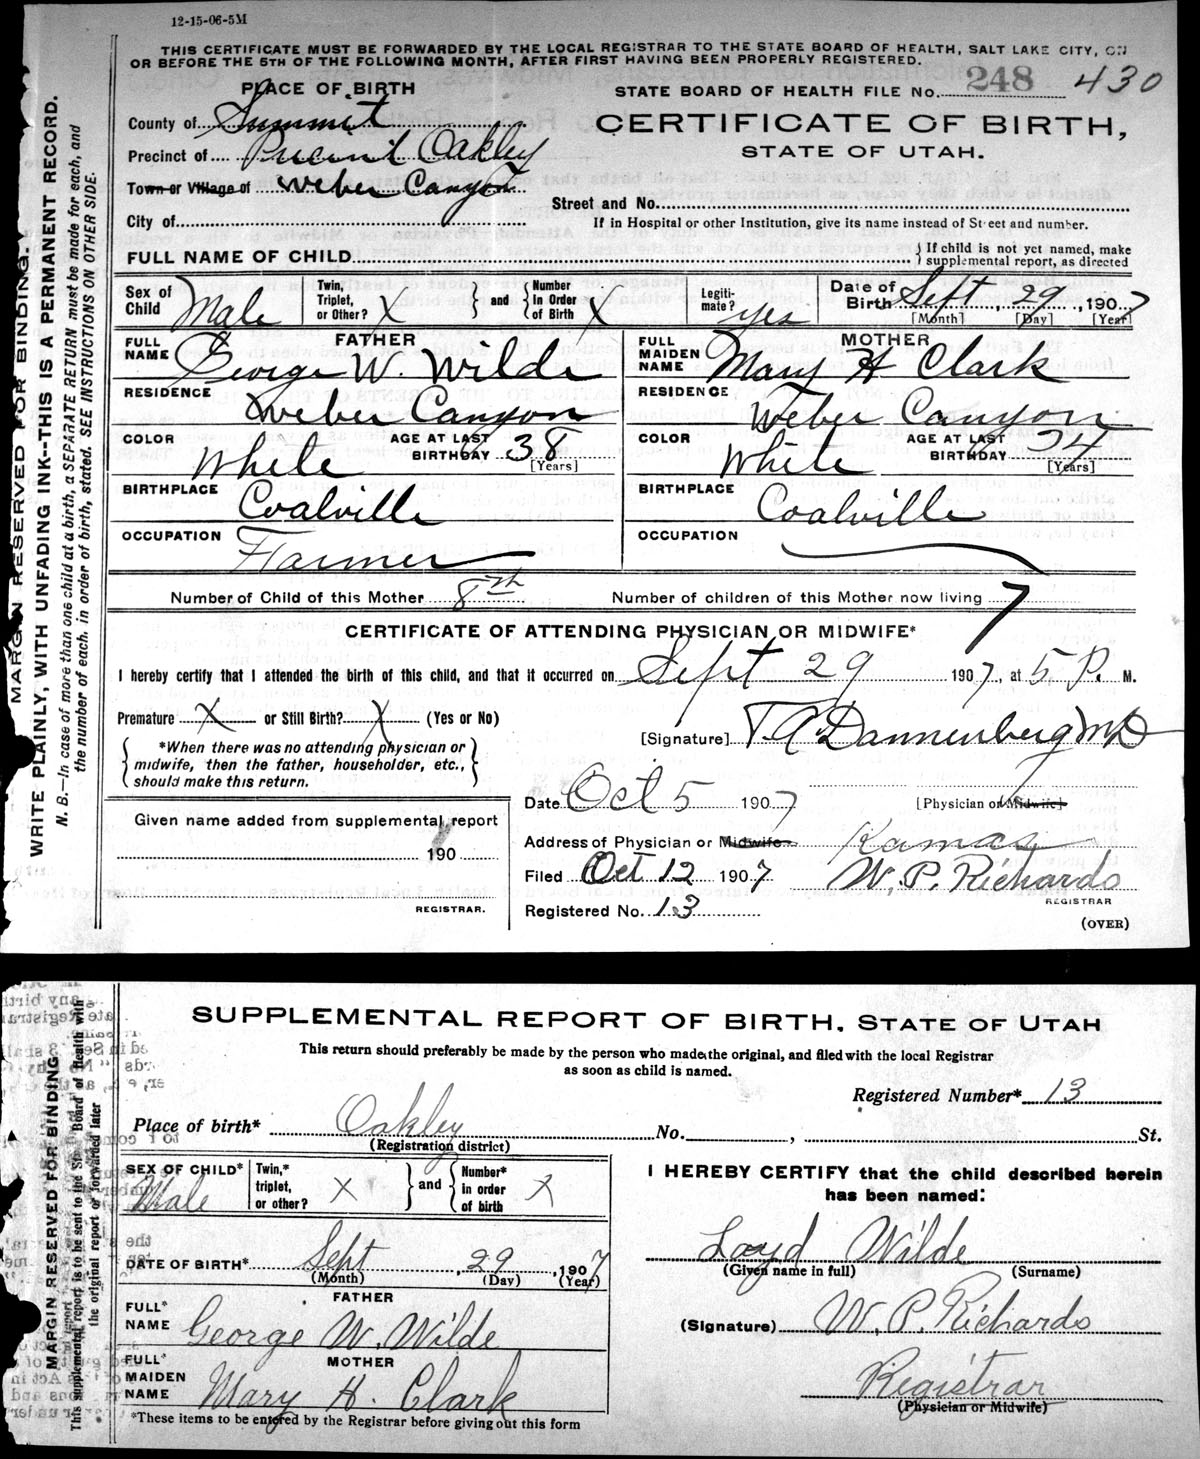 12-15-06-5M
THIS CERTIFICATE MUST BE FORWARDED BY THE LOCAL REGISTRAR TO THE STATE BOARD OF HEALTH, SALT LAKE CITY, ON
OR BEFORE THE 5TH OF THE FOLLOWING MONTH, AFTER FIRST HAVING BEEN PROPERLY REGISTERED.
PLACE OF BIRTH
STATE BOARD OF HEALTH FILE No. 248 430
County of Summit
CERTIFICATE OF BIRTH,
STATE OF UTAH.
Precinct of Oakley
Town or Village of Weber Canyon
Street and No.
City of
If in Hospital or other Institution, give its name instead of Street and number.
FULL NAME OF CHILD
{ If child is not yet named, make
supplemental report, as directed
Sex of Child Male
Twin, Triplet, or Other? X } and { Number In Order of Birth X
Legiti- mate? yes
Date of Birth Sept 29, 1907
[Month] [Day] [Year]
FATHER
FULL NAME George W. Wilde
RESIDENCE Weber Canyon
COLOR White AGE AT LAST BIRTHDAY 38 [Years]
BIRTHPLACE Coalville
OCCUPATION Farmer
MOTHER
FULL MAIDEN NAME Mary H Clark
RESIDENCE Weber Canyon
COLOR White AGE AT LAST BIRTHDAY 34 [Years]
BIRTHPLACE Coalville
OCCUPATION
Number of Child of this Mother 8th Number of children of this Mother now living 7
CERTIFICATE OF ATTENDING PHYSICIAN OR MIDWIFE*
I hereby certify that I attended the birth of this child, and that it occurred on Sept 29 1907, at 5 P. M.
Premature X or Still Birth? X (Yes or No)
[Signature] T. A. Dannenberg MD
{ *When there was no attending physician or
midwife, then the father, householder, etc.,
should make this return. }
Date Oct 5 1907 [Physician or Midwife]
Given name added from supplemental report
190
REGISTRAR.
Address of Physician or Midwife Kamas
Filed Oct 12 1907 W. P. Richards
REGISTRAR
Registered No. 13
(OVER)
MARGIN RESERVED FOR BINDING.
WRITE PLAINLY, WITH UNFADING INK--THIS IS A PERMANENT RECORD.
N. B.—In case of more than one child at a birth, a SEPARATE RETURN must be made for each, and
the number of each, in order of birth, stated. SEE INSTRUCTIONS ON OTHER SIDE.
SUPPLEMENTAL REPORT OF BIRTH, STATE OF UTAH
This return should preferably be made by the person who made the original, and filed with the local Registrar
as soon as child is named.
Registered Number* 13
Place of birth* Oakley No. , St.
(Registration district)
SEX OF CHILD* Male
Twin,* triplet, or other? X } and { Number* in order of birth X
DATE OF BIRTH* Sept 29, 1907
(Month) (Day) (Year)
FATHER
FULL* NAME George W. Wilde
MOTHER
FULL* MAIDEN NAME Mary H. Clark
*These items to be entered by the Registrar before giving out this form
I HEREBY CERTIFY that the child described herein
has been named:
Loyd Wilde
(Given name in full) (Surname)
(Signature) W. P. Richards
Registrar
(Physician or Midwife)
MARGIN RESERVED FOR BINDING
This supplemental report is to be sent to the Board of Health with
the original report or forwarded later